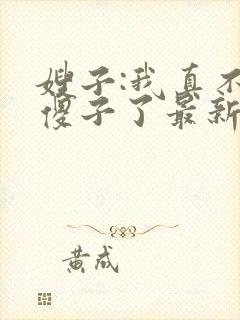 嫂子:我真不
傻子了最新
黄成